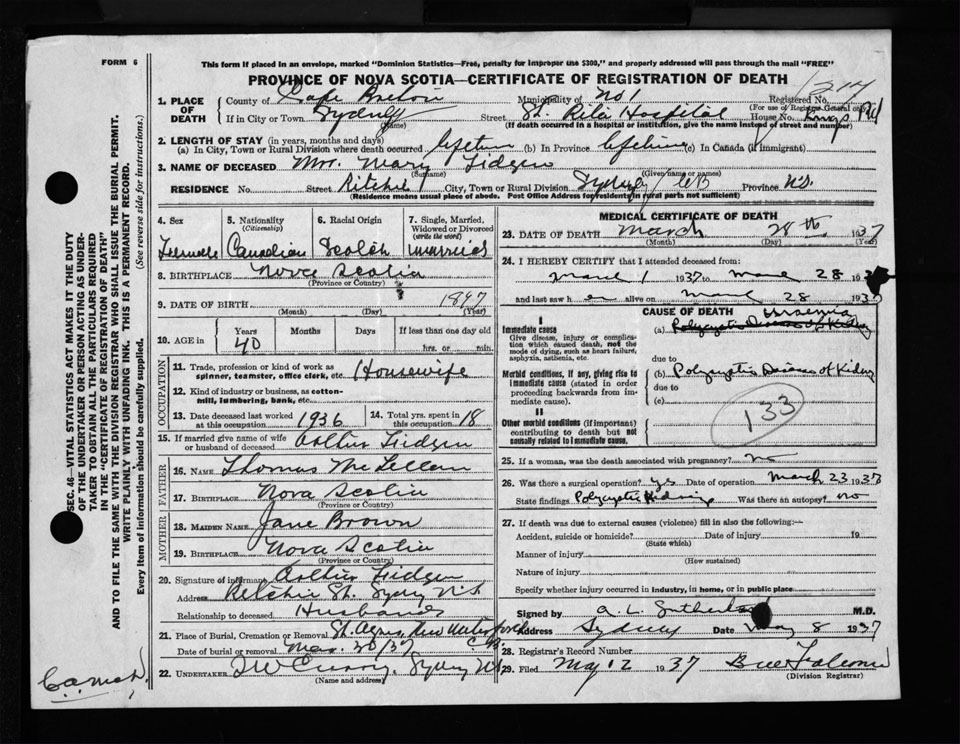 FORM 6
This form if placed in an envelope, marked "Dominion Statistics—Free, penalty for improper use $300," and properly addressed will pass through the mail "FREE"
PROVINCE OF NOVA SCOTIA—CERTIFICATE OF REGISTRATION OF DEATH
1. PLACE OF DEATH County of Cape Breton Municipality of No 1 Registered No.
(For use of Registrar General only)
If in City or Town Sydney Street St. Rita Hospital House No. Kings Rd
(Name) (If death occurred in a hospital or institution, give the name instead of street and number)
2. LENGTH OF STAY (in years, months and days)
(a) In City, Town or Rural Division where death occurred lifetime (b) In Province lifetime (c) In Canada (if immigrant)
3. NAME OF DECEASED Mrs. Mary
(Surname) (Given name or names)
RESIDENCE No. Street Ritchie City, Town or Rural Division Sydney CB Province N.S.
(Residence means usual place of abode. Post Office Address for residents in rural parts not sufficient)
4. Sex
Female
5. Nationality
(Citizenship)
Canadian
6. Racial Origin
Scotch
7. Single, Married, Widowed or Divorced
(write the word)
married
8. BIRTHPLACE Nova Scotia
(Province or Country)
9. DATE OF BIRTH 1897
(Month) (Day) (Year)
10. AGE in Years Months Days If less than one day old
40 hrs. or min.
OCCUPATION
11. Trade, profession or kind of work as spinner, teamster, office clerk, etc. Housewife
12. Kind of industry or business, as cotton-mill, lumbering, bank, etc.
13. Date deceased last worked at this occupation 1936
14. Total yrs. spent in 18
15. If married give name of wife or husband of deceased
FATHER
16. NAME Thomas McLellan
17. BIRTHPLACE Nova Scotia
(Province or Country)
MOTHER
18. MAIDEN NAME Jane Brown
19. BIRTHPLACE Nova Scotia
(Province or Country)
20. Signature of informant
Address Ritchie St. Sydney N.S.
Relationship to deceased Husband
21. Place of Burial, Cremation or Removal St. Agnes, New Waterford
Date of burial or removal Mar. 30/37 C.B.
22. UNDERTAKER Sydney N.S.
(Name and address)
MEDICAL CERTIFICATE OF DEATH
23. DATE OF DEATH March 28th 1937
(Month) (Day) (Year)
24. I HEREBY CERTIFY that I attended deceased from:
March 1 1937 to March 28 1937
and last saw her alive on March 28 1937
CAUSE OF DEATH
I
Immediate cause
Give disease, injury or complication which caused death, not the mode of dying, such as heart failure, asphyxia, asthenia, etc.
Morbid conditions, if any, giving rise to immediate cause (stated in order proceeding backwards from immediate cause).
II
Other morbid conditions (if important) contributing to death but not causally related to immediate cause.
Uraemia
(a) Polycystic Disease of Kidney
due to
(b) Polycystic Disease of Kidney
due to
(c)
133
25. If a woman, was the death associated with pregnancy? no
26. Was there a surgical operation? yes Date of operation March 23 1937
State findings Polycystic Kidney Was there an autopsy? no
27. If death was due to external causes (violence) fill in also the following:—
Accident, suicide or homicide? Date of injury 19
(State which)
Manner of injury
(How sustained)
Nature of injury
Specify whether injury occurred in industry, in home, or in public place
Signed by A. L. Sutherland M.D.
Address Sydney Date May 8 1937
28. Registrar's Record Number
29. Filed May 12 1937
(Division Registrar)
SEC. 46—VITAL STATISTICS ACT MAKES IT THE DUTY OF THE UNDERTAKER OR PERSON ACTING AS UNDERTAKER TO OBTAIN ALL THE PARTICULARS REQUIRED IN THE "CERTIFICATE OF REGISTRATION OF DEATH" AND TO FILE THE SAME WITH THE DIVISION REGISTRAR WHO SHALL ISSUE THE BURIAL PERMIT.
WRITE PLAINLY WITH UNFADING INK. THIS IS A PERMANENT RECORD.
Every item of information should be carefully supplied. (See reverse side for instructions.)